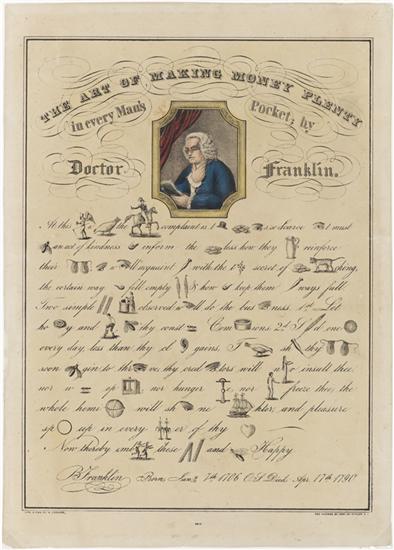 THE ART OF MAKING MONEY PLENTY
in every Man's Pocket; by
Doctor Franklin.
At this the complaint is t is so scarce it must
an act of kindness inform the less how they reinforce
their I will acquaint with the secret of ching,
the certain way fill empty & how keep them always full.
Two simple observed will do the bus ness. 1st Let
ho y and thy const Com ions 2d d one
every day, less than thy gains, T sh thy
soon gin to thr ve, thy cred tors will n r insult thee,
nor w op nor hunger e, nor freeze thee, the
whole home will sh ne and pleasure
sp up in every er of thy
Now thereby em these and Happy
B. Franklin Born Jany. 7th 1706 O.S. Died Apr. 17th 1790